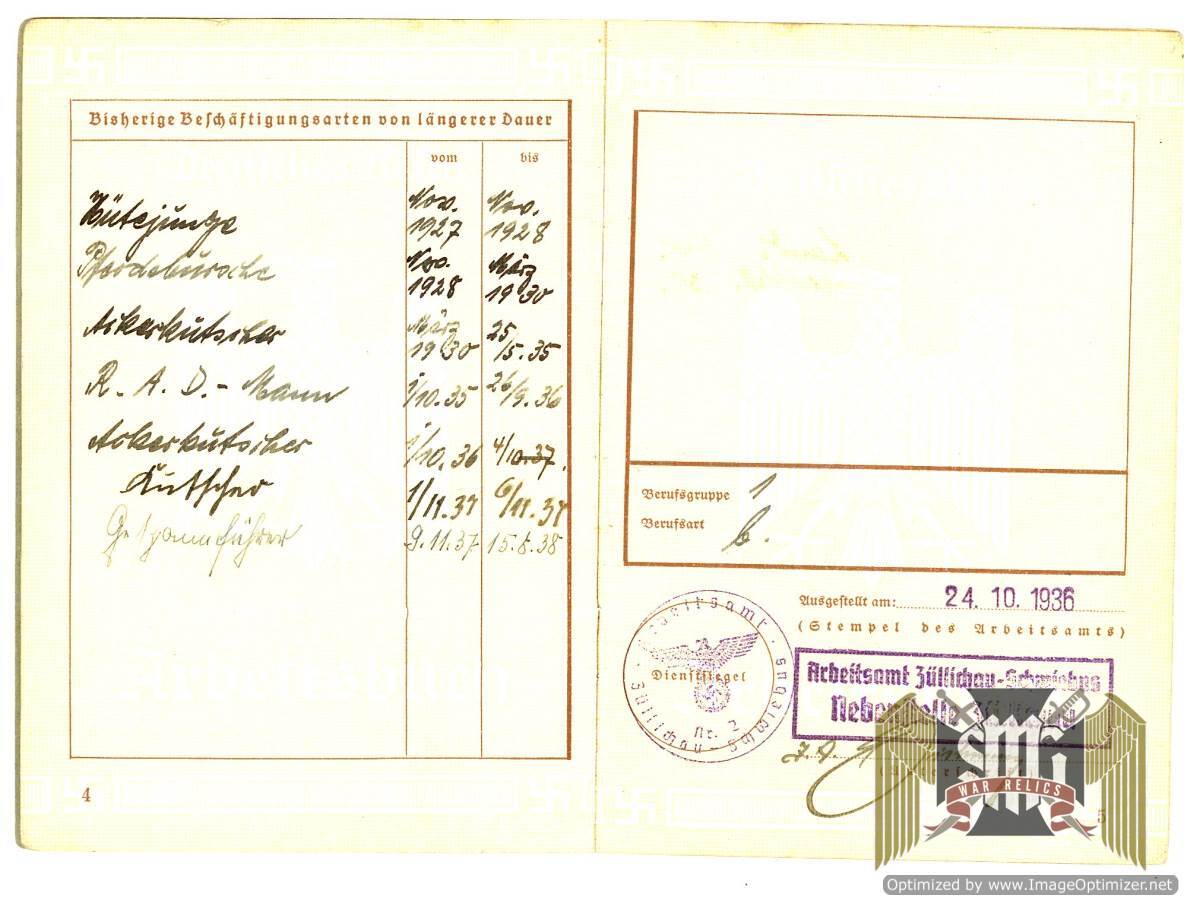 Bisherige Beschäftigungsarten von längerer Dauer
vom bis
Hütejunge Nov. 1927 Nov. 1928
Pferdebursche Nov. 1928 März 1930
Ackerkutscher März 1930 25/5.35
R. A. D. - Mann 1/10.35 26/9.36
Ackerkutscher 1/10.36 4/10.37.
Kutscher 1/11.37 6/11.37
Gespannführer 9.11.37 15.8.38
4
Berufsgruppe 1
Berufsart b.
Ausgestellt am: 24. 10. 1936
(Stempel des Arbeitsamts)
Arbeitsamt Züllichau-Schwiebus
Dienstsiegel
Nr. 2
Arbeitsamt Züllichau-Schwiebus
Nebenstelle
I. A.
5
SMGI
WAR RELICS
Optimized by www.ImageOptimizer.net